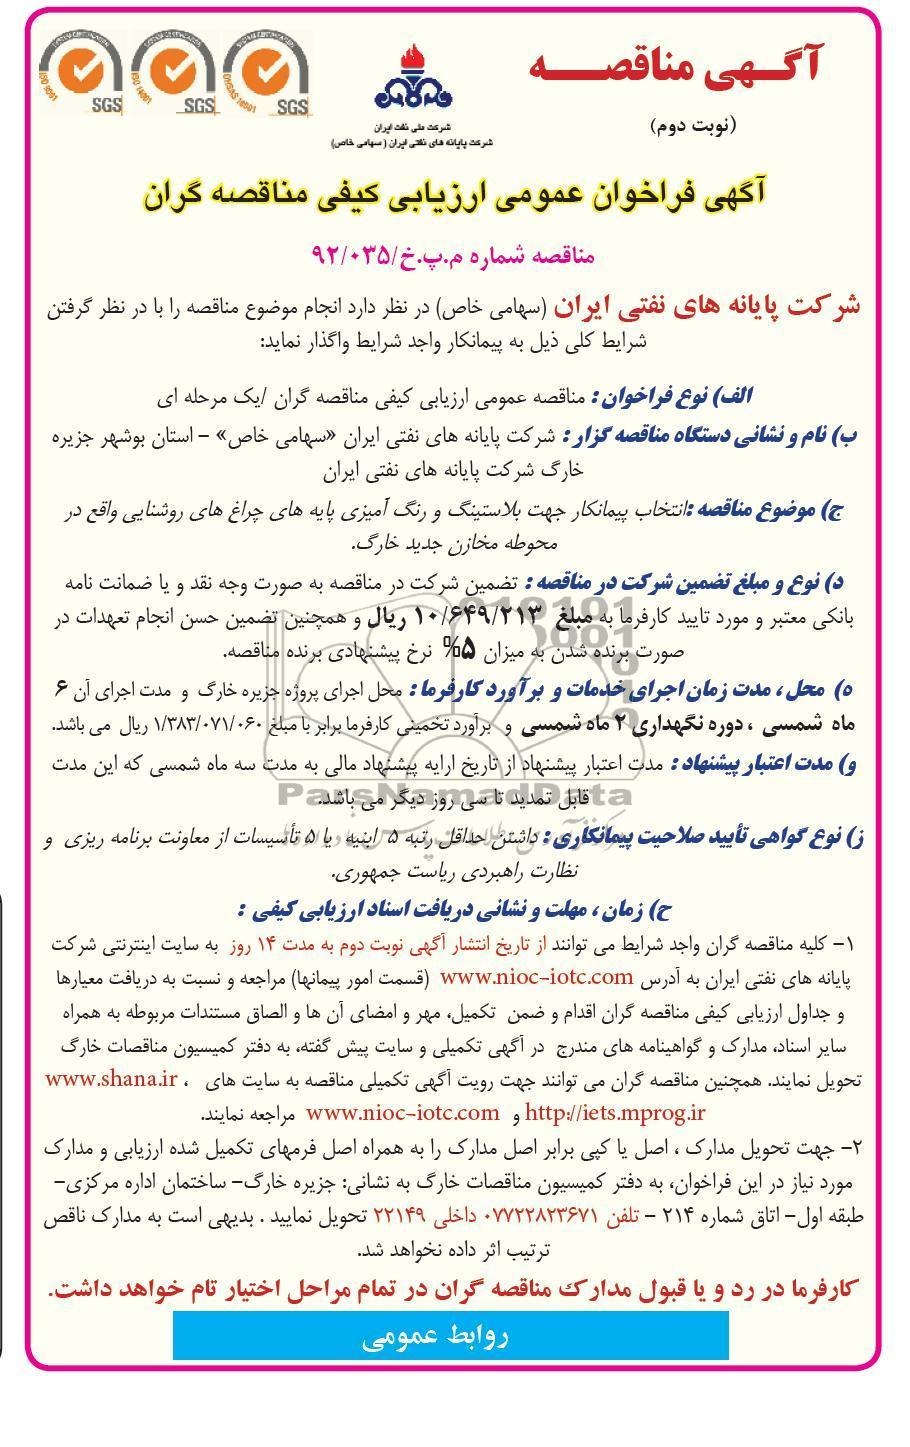 آگهی مناقصه
(نوبت دوم)
SGS
SGS
SGS
شرکت ملی نفت ایران
شرکت پایانه های نفتی ایران (سهامی خاص)
آگهی فراخوان عمومی ارزیابی کیفی مناقصه گران
مناقصه شماره م.پ.خ/۹۲/۰۳۵
شرکت پایانه های نفتی ایران (سهامی خاص) در نظر دارد انجام موضوع مناقصه را با در نظر گرفتن
شرایط کلی ذیل به پیمانکار واجد شرایط واگذار نماید:
الف) نوع فراخوان : مناقصه عمومی ارزیابی کیفی مناقصه گران /یک مرحله ای
ب) نام و نشانی دستگاه مناقصه گزار : شرکت پایانه های نفتی ایران «سهامی خاص» – استان بوشهر جزیره
خارگ شرکت پایانه های نفتی ایران
ج) موضوع مناقصه :انتخاب پیمانکار جهت بلاستینگ و رنگ آمیزی پایه های چراغ های روشنایی واقع در
محوطه مخازن جدید خارگ.
د) نوع و مبلغ تضمین شرکت در مناقصه : تضمین شرکت در مناقصه به صورت وجه نقد و یا ضمانت نامه
بانکی معتبر و مورد تایید کارفرما به مبلغ ۱۰/۶۴۹/۲۱۳ ریال و همچنین تضمین حسن انجام تعهدات در
صورت برنده شدن به میزان ۵% نرخ پیشنهادی برنده مناقصه.
ه) محل ، مدت زمان اجرای خدمات و برآورد کارفرما : محل اجرای پروژه جزیره خارگ و مدت اجرای آن ۶
ماه شمسی ، دوره نگهداری ۲ ماه شمسی و برآورد تخمینی کارفرما برابر با مبلغ ۱/۳۸۳/۰۷۱/۰۶۰ ریال می باشد.
و) مدت اعتبار پیشنهاد : مدت اعتبار پیشنهاد از تاریخ ارایه پیشنهاد مالی به مدت سه ماه شمسی که این مدت
قابل تمدید تا سی روز دیگر می باشد.
ParsNamadData
ز) نوع گواهی تأیید صلاحیت پیمانکاری : داشتن حداقل رتبه ۵ ابنیه یا ۵ تأسیسات از معاونت برنامه ریزی و
نظارت راهبردی ریاست جمهوری.
ح) زمان ، مهلت و نشانی دریافت اسناد ارزیابی کیفی :
۱– کلیه مناقصه گران واجد شرایط می توانند از تاریخ انتشار آگهی نوبت دوم به مدت ۱۴ روز به سایت اینترنتی شرکت
پایانه های نفتی ایران به آدرس www.nioc-iotc.com (قسمت امور پیمانها) مراجعه و نسبت به دریافت معیارها
و جداول ارزیابی کیفی مناقصه گران اقدام و ضمن تکمیل، مهر و امضای آن ها و الصاق مستندات مربوطه به همراه
سایر اسناد، مدارک و گواهینامه های مندرج در آگهی تکمیلی و سایت پیش گفته، به دفتر کمیسیون مناقصات خارگ
تحویل نمایند. همچنین مناقصه گران می توانند جهت رویت آگهی تکمیلی مناقصه به سایت های ، www.shana.ir
http://iets.mprog.ir و www.nioc-iotc.com مراجعه نمایند.
۲– جهت تحویل مدارک ، اصل یا کپی برابر اصل مدارک را به همراه اصل فرمهای تکمیل شده ارزیابی و مدارک
مورد نیاز در این فراخوان، به دفتر کمیسیون مناقصات خارگ به نشانی: جزیره خارگ– ساختمان اداره مرکزی–
طبقه اول– اتاق شماره ۲۱۴ – تلفن ۰۷۷۲۲۸۲۳۶۷۱ داخلی ۲۲۱۴۹ تحویل نمایید . بدیهی است به مدارک ناقص
ترتیب اثر داده نخواهد شد.
کارفرما در رد و یا قبول مدارک مناقصه گران در تمام مراحل اختیار تام خواهد داشت.
روابط عمومی